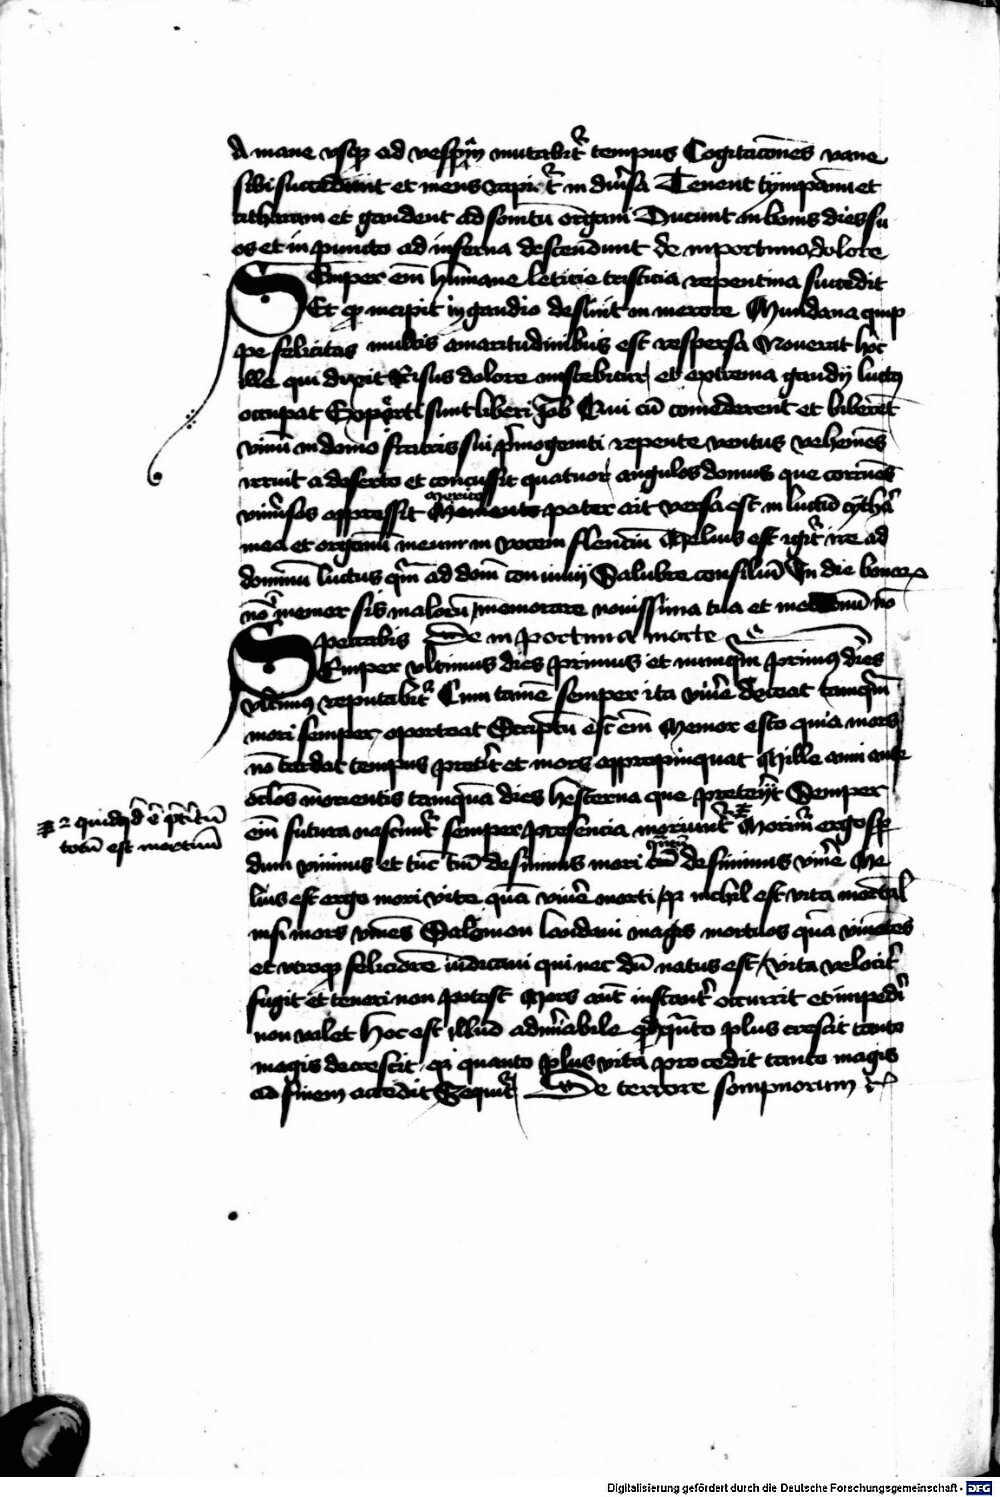 A mane vsq ad vesp̄am mutabit᷑ tempus Cogitacōnes vane
sibi succedunt et mens rapit᷑ in diu̾sa Tenent tympanū et
citharam et gaudent ad sonitū organi Ducunt in bonis dies su
os et in puncto ad inferna descendunt de inportuno dolore
Semper em̄ humane leticie tristicia repentina succedit
Et q incipit in gaudio desinit in merore Mundana quip
pe felicitas multis amaritudinibus est respersa Nouerat hoc
ille qui dixit Risus dolore miscebitur et extrema gaudij luctus
occupat Exp̄ti sunt liberi Job Qui cū comederent et biberēt
vinū in domo fratris sui p̄mogeniti repente ventus vehemēs
irruit a deserto et concussit quatuor angulos domus que corruēs
vniu̾sos oppressit Merito pater ait versa est in luctū cythara
mea et organū meum in vocem flenciū Melius est igit᷑ ire ad
domum luctus qm̄ ad dom̄ conuiuij Salubre consiliū In die bonor
nō īmemor sis malorū memorare nouissima tua et inet'nū nō
peccabis de inportuna morte
Semper vltimus dies primus et numqm̄ primus dies
vltimus reputabit᷑ Cum tamē semper ita viu̾e deceat tamqm̄
mori semper oporteat Scriptū est em̄ Memor esto quia mors
nō tardat tempus preterit et mors appropinquat Mille anni ante
oclos morientis tamquā dies hesterna que preterijt Semper
em̄ futura nascunt᷑ semper presencia moriunt᷑ Morim̄ ergo sp̄
2 quidqd ē p̄teritū
totū est mortuū
dum viuimus et tūc tm̄ desinimus mori cū desinimus viu̾e Me
lius est ergo mori vite quā viu̾e morti q nichil est vita mortal
nisi mors viuēs Salomon laudaui magis mortuos quā viuētes
et vtroq feliciorē iudicaui qui nec dū natus est vita velocit᷑
fugit et teneri non potest Mors aūt instant᷑ occurrit et impedi᷑
non valet Hoc est illud admirabile qd quāto plus crescit tanto
magis decrescit q quanto plus vita procedit tanto magis
ad finem accedit Sequit᷑ De terrore sompnorum
Digitalisierung gefördert durch die Deutsche Forschungsgemeinschaft - DFG